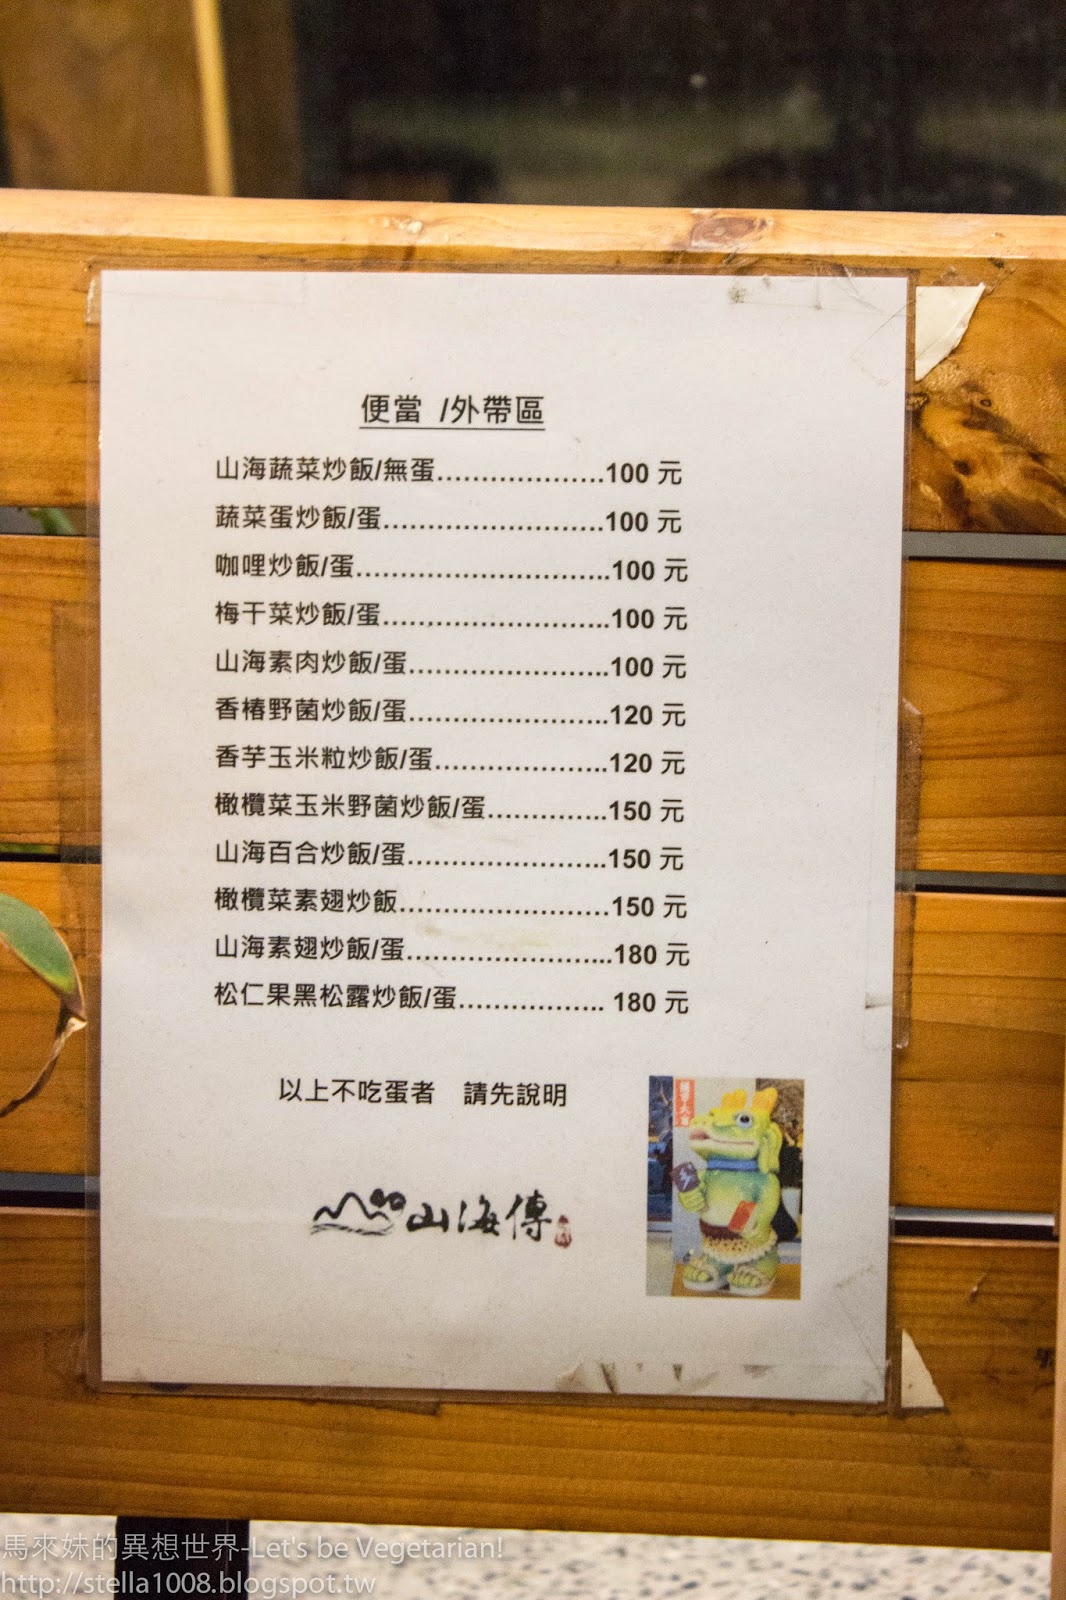 便當 /外帶區
山海蔬菜炒飯/無蛋....................100 元
蔬菜蛋炒飯/蛋..........................100 元
咖哩炒飯/蛋..............................100 元
梅干菜炒飯/蛋...........................100 元
山海素肉炒飯/蛋........................100 元
香椿野菌炒飯/蛋........................120 元
香芋玉米粒炒飯/蛋.....................120 元
橄欖菜玉米野菌炒飯/蛋..............150 元
山海百合炒飯/蛋........................150 元
橄欖菜素翅炒飯.........................150 元
山海素翅炒飯/蛋.........................180 元
松仁果黑松露炒飯/蛋.................. 180 元
以上不吃蛋者 請先說明
山海傳
馬來妹的異想世界-Let's be Vegetarian!
http://stella1008.blogspot.tw